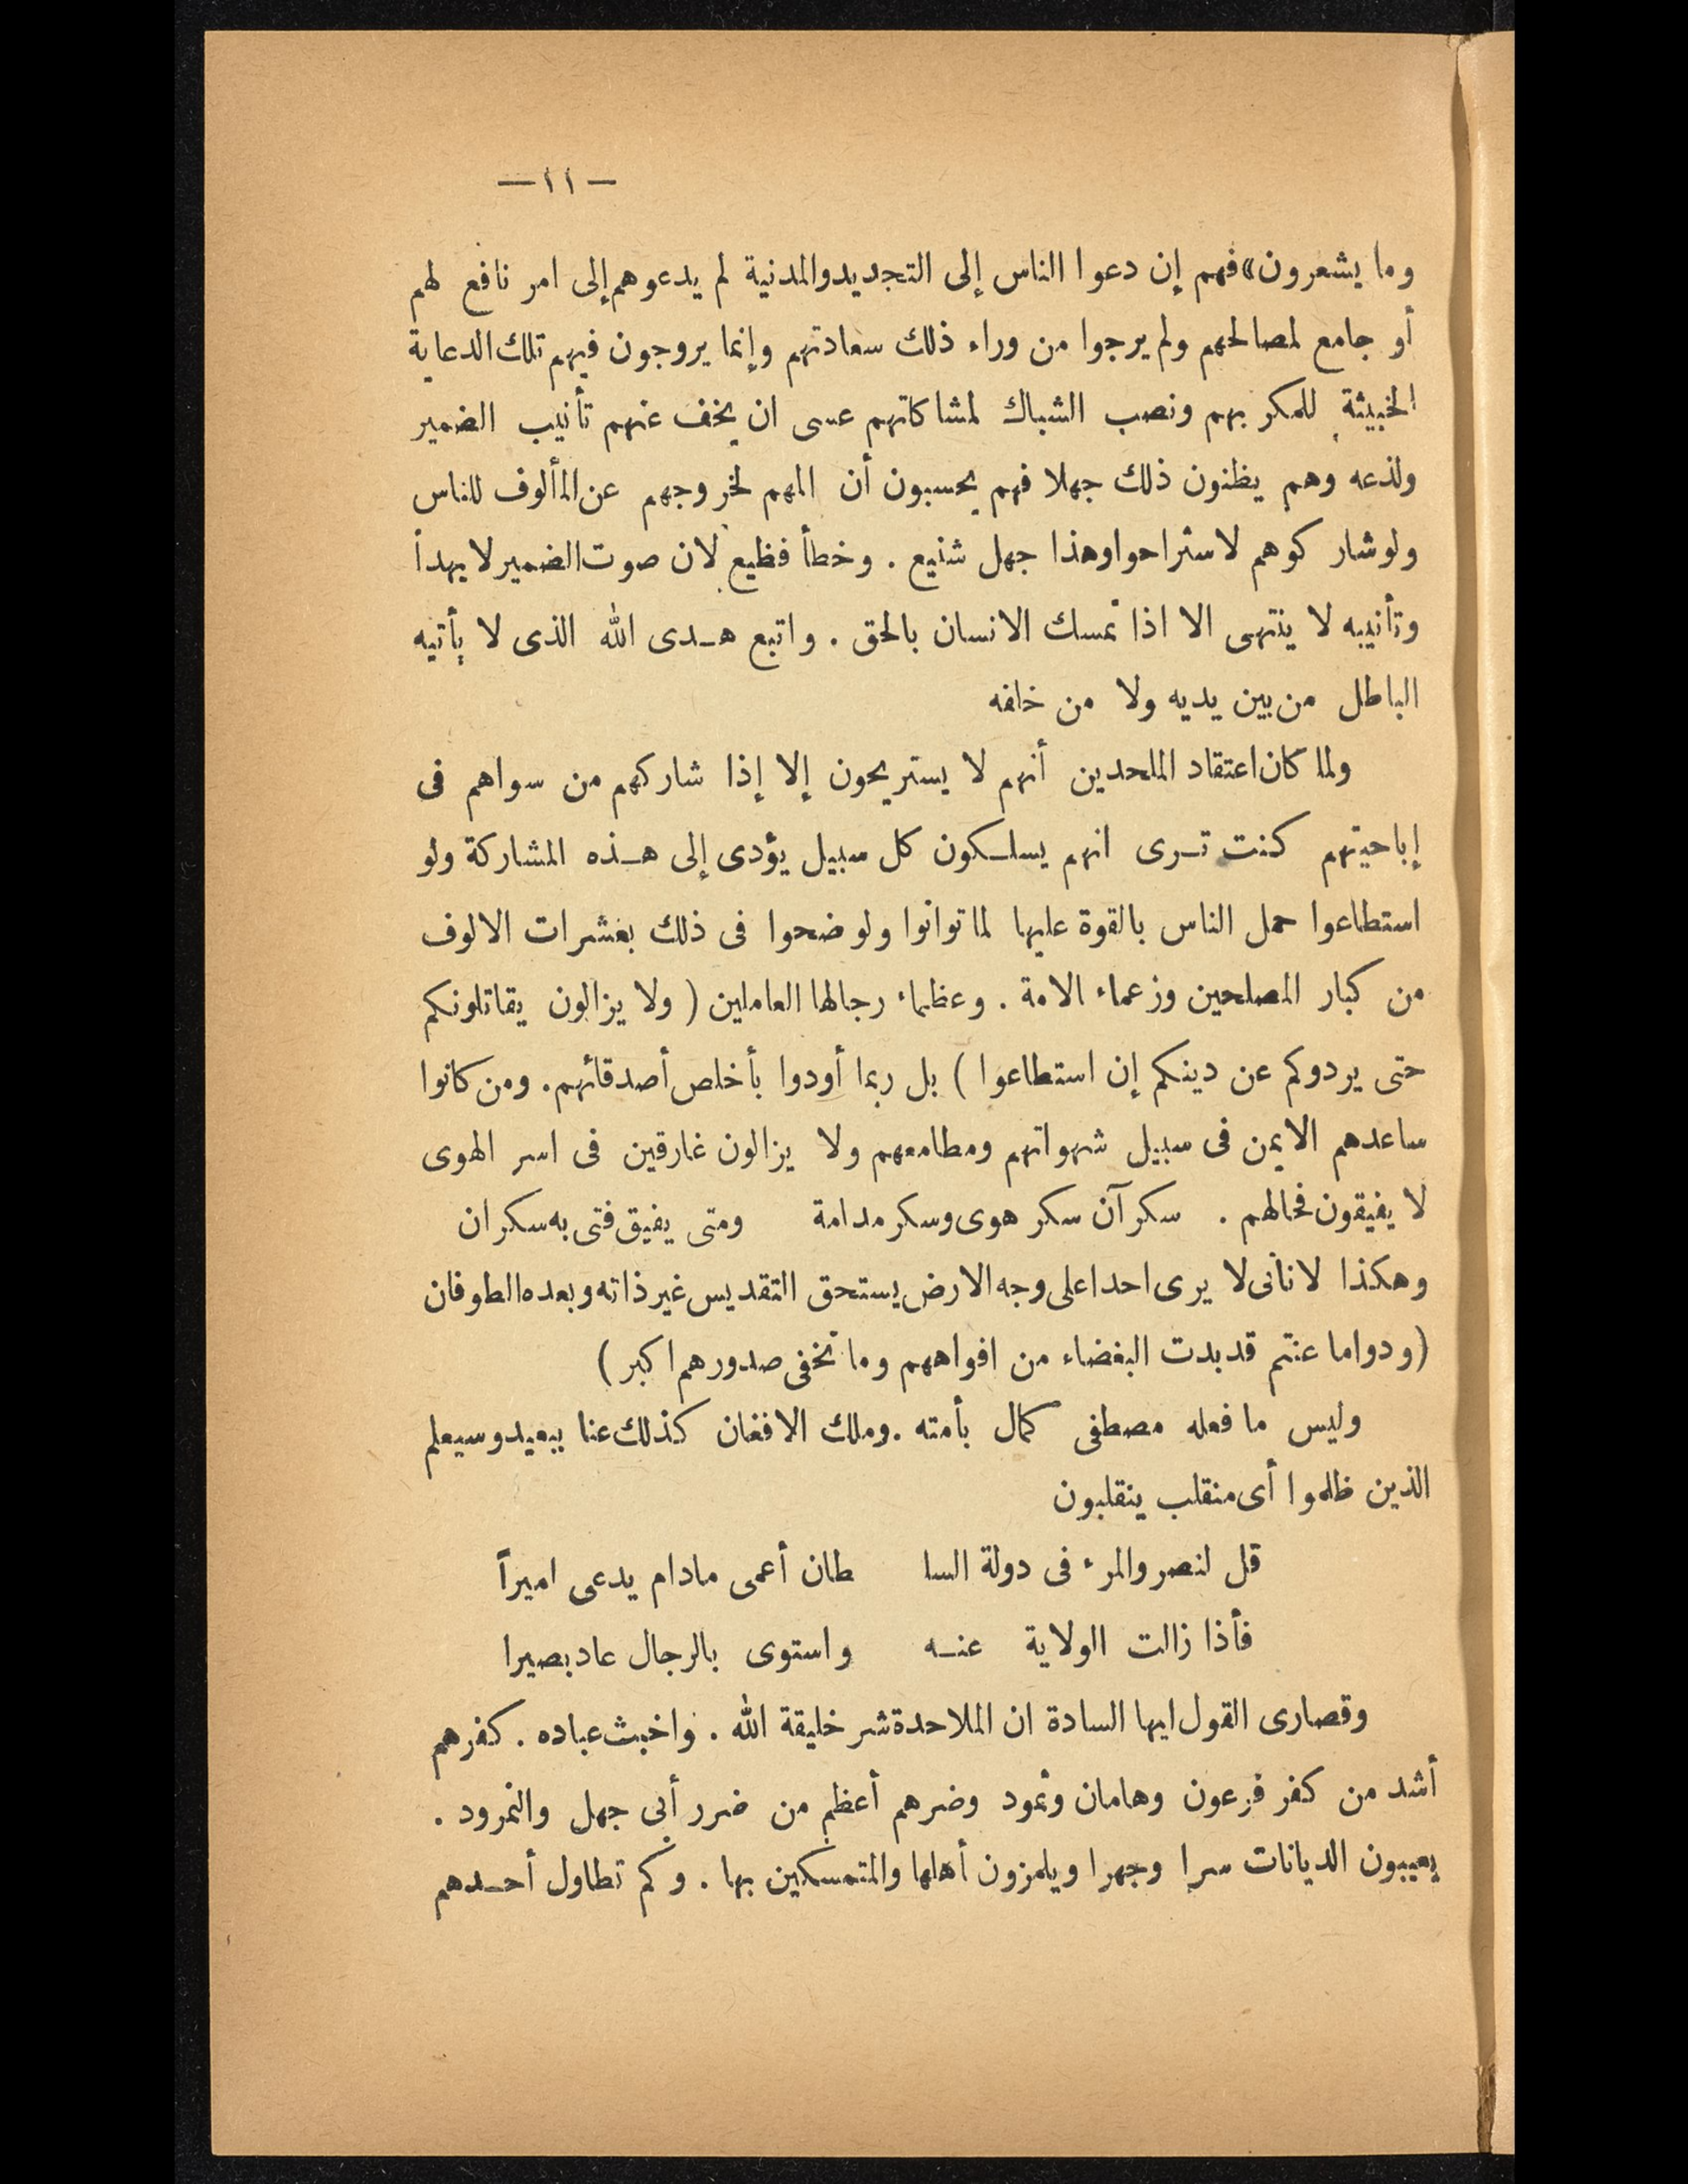 — ١١ —
وما يشعرون» فهم إن دعوا الناس إلى التجديد والمدنية لم يدعوهم إلى امر نافع لهم
أو جامع لمصالحهم ولم يرجوا من وراء ذلك سعادتهم وإنما يروجون فيهم تلك الدعاية
الخبيثة للمكر بهم ونصب الشباك لمشاكاتهم عسى ان يخف عنهم تأنيب الضمير
ولذعه وهم يظنون ذلك جهلا فهم يحسبون أن المهم لخروجهم عن المألوف للناس
ولو شاركوهم لاستراحوا وهذا جهل شنيع . وخطأ فظيع لان صوت الضمير لا يهدأ
وتأنيبه لا ينتهى الا اذا تمسك الانسان بالحق . واتبع هـدى الله الذى لا يأتيه
الباطل من بين يديه ولا من خلفه
ولما كان اعتقاد الملحدين أنهم لا يستريحون إلا إذا شاركهم من سواهم فى
إباحيتهم كنت تـرى انهم يسلـكون كل سبيل يؤدى إلى هـذه المشاركة ولو
استطاعوا حمل الناس بالقوة عليها لما توانوا ولو ضحوا فى ذلك بعشرات الالوف
من كبار المصلحين وزعماء الامة . وعظماء رجالها العاملين ( ولا يزالون يقاتلونكم
حتى يردوكم عن دينكم إن استطاعوا ) بل ربما أودوا بأخلص أصدقائهم . ومن كانوا
ساعدهم الايمن فى سبيل شهواتهم ومطامعهم ولا يزالون غارقين فى اسر الهوى
لا يفيقون فحالهم . سكرآن سكر هوى وسكر مدامة ومتى يفيق فتى به سكران
وهكذا لانانى لا يرى احدا على وجه الارض يستحق التقديس غير ذاته وبعده الطوفان
(ودوا ما عنتم قد بدت البغضاء من افواههم وما تخفى صدورهم اكبر)
وليس ما فعله مصطفى كمال بأمته . وملك الافغان كذلك عنا ببعيد وسيعلم
الذين ظلموا أى منقلب ينقلبون
قل لنصر والمرء فى دولة السلـ طان أعمى مادام يدعى اميراً
فأذا زالت الولاية عنـه واستوى بالرجال عاد بصيرا
وقصارى القول ايها السادة ان الملاحدة شر خليقة الله . واخبث عباده . كفرهم
أشد من كفر فرعون وهامان وثمود وضرهم أعظم من ضرر أبى جهل والنمرود .
يعيبون الديانات سرا وجهرا ويلمزون أهلها والمتمسكين بها . وكم تطاول أحـدهم